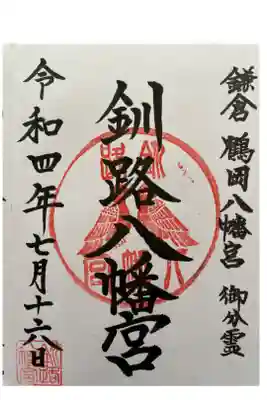 鎌倉 鶴岡八幡宮 御分霊
釧路八幡宮
令和四年七月十六日